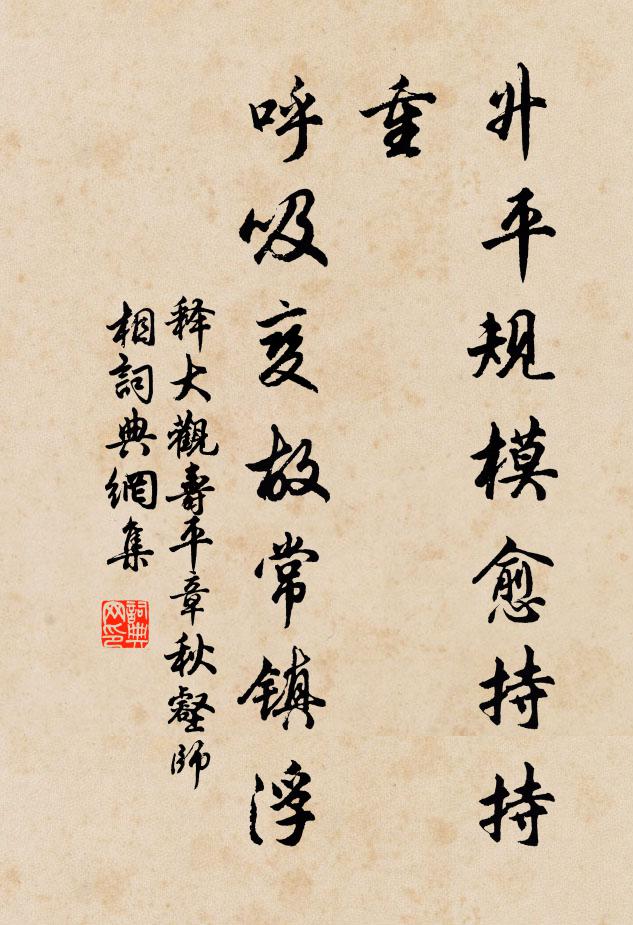 升平規模愈持持
重
呼吸變故常镇浮
释大觀壽平章秋壑師
相詞典網集
詞典
网印